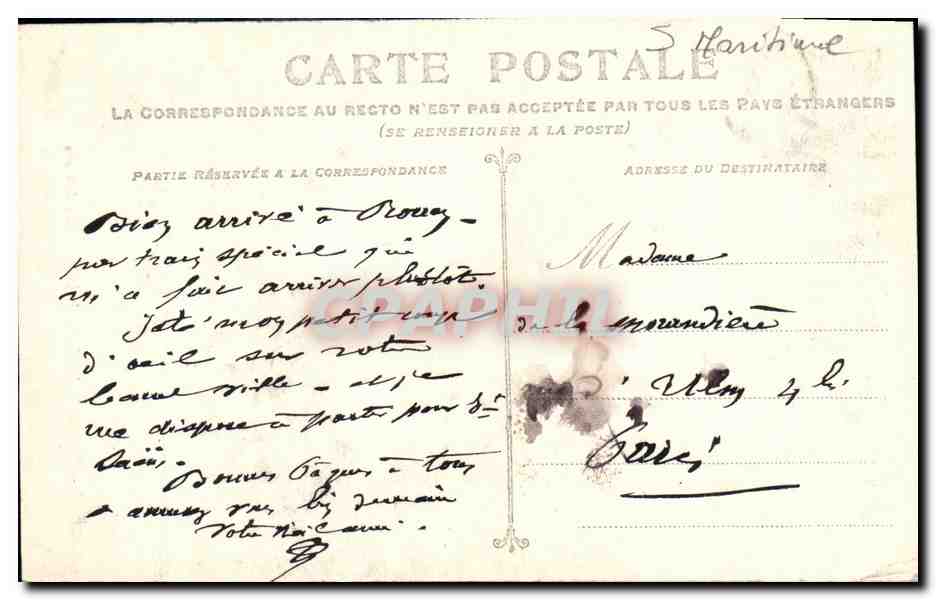 S Maritime
CARTE POSTALE
LA CORRESPONDANCE AU RECTO N'EST PAS ACCEPTÉE PAR TOUS LES PAYS ÉTRANGERS
(SE RENSEIGNER A LA POSTE)
PARTIE RÉSERVÉE A LA CORRESPONDANCE
Bien arrivé à Rouen
par train spécial qui
m'a fait arriver plutôt.
Jeté mon petit coup
d'oeil sur votre
bonne ville - et je
me dispose à partir pour St
Saëns.
Bonnes Pâques à tous
amusez vous bien demain
Votre
ADRESSE DU DESTINATAIRE
Madame
de la Morandière
d'Ulm 4 bis
Paris
CPAPHIL